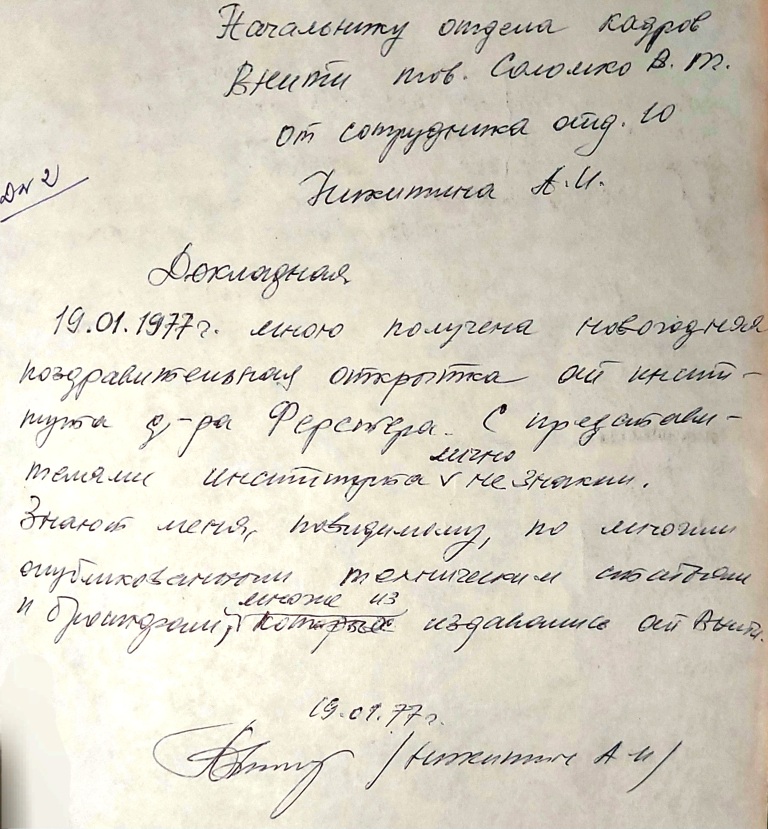 Начальнику отдела кадров
ВНИТИ тов. Соломко В. Т.
от сотрудника отд. 10
Никитина А.И.
Дн 2
Докладная
19.01.1977г. мною получена новогодняя
поздравительная открытка от инсти-
тута д-ра Ферстера. С представи-
лично
телями института V не знаком.
Знают меня, повидимому, по многим
опубликованным техническим статьям
многие из
и брошюрам, V которые издавались от ВНИТИ.
19.01.77г.
/Никитин А И/